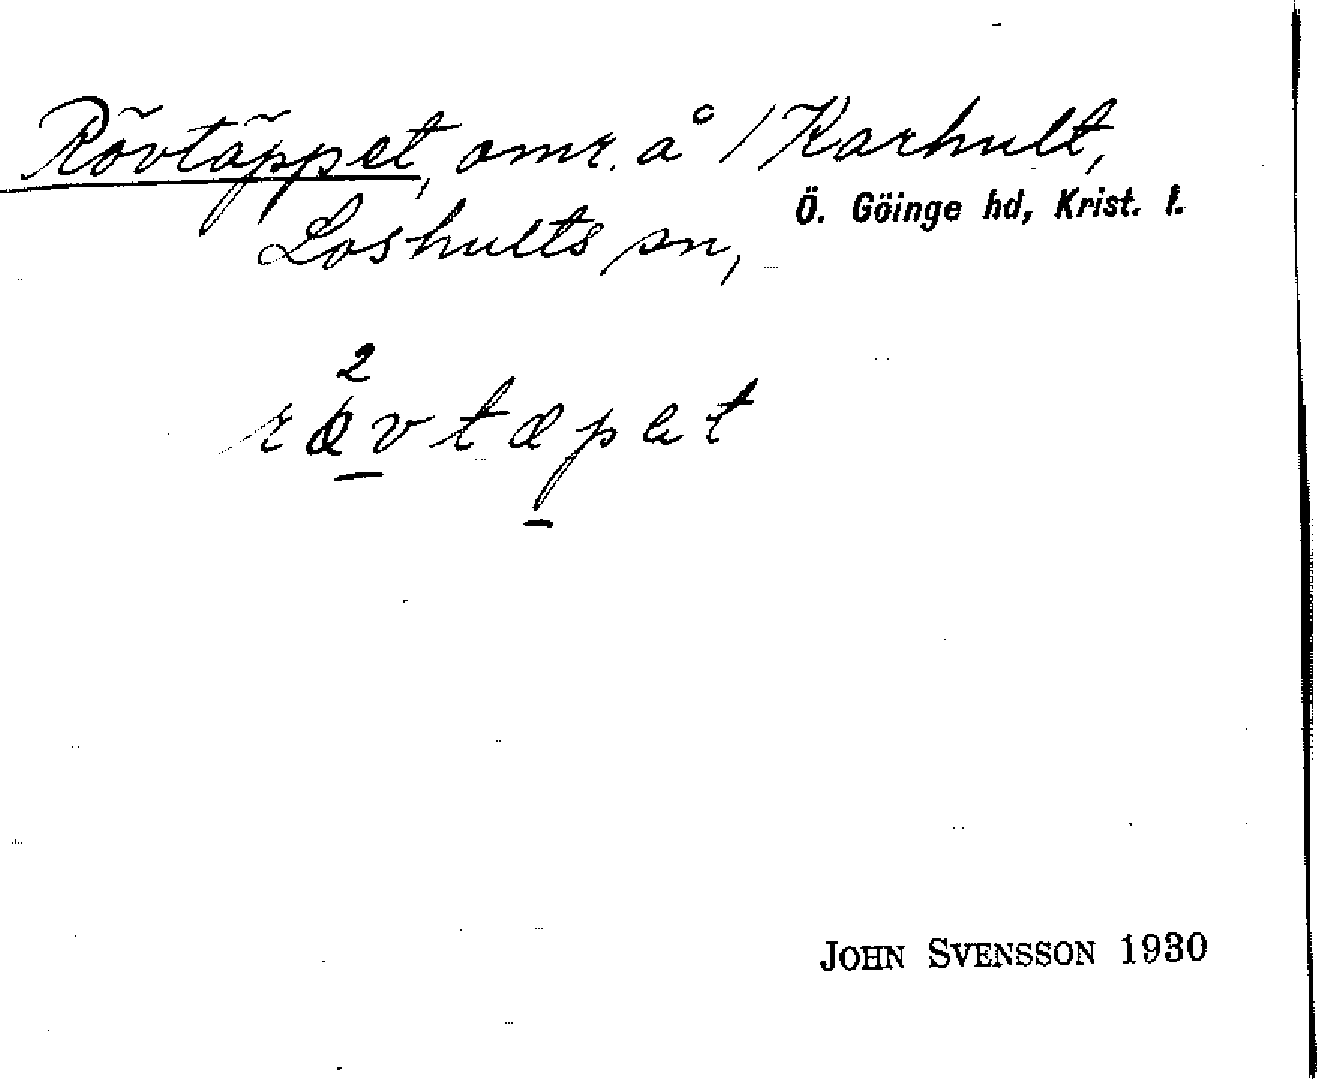 Rövtäppet, omr. å 1 Karhult,
Loshults sn, Ö. Göinge hd, Krist. l.
2
rævtæpet
JOHN SVENSSON 1930